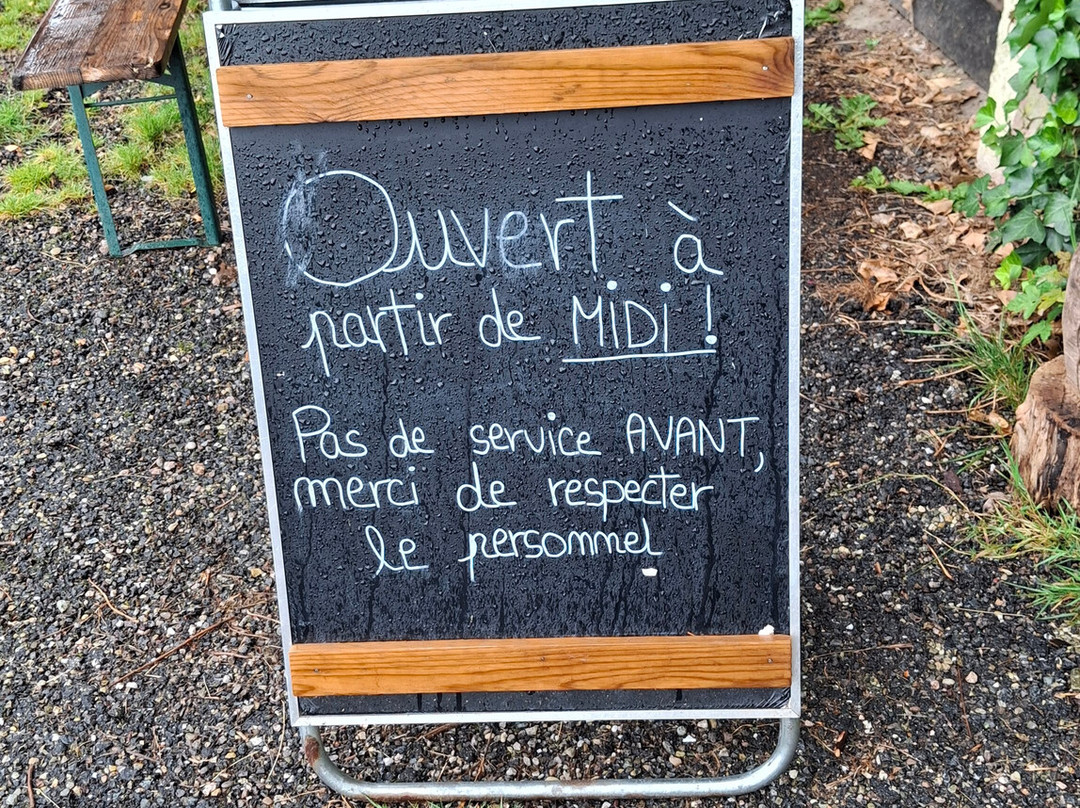 Ouvert à
partir de MiDi !
Pas de service AVANT,
merci de respecter
le personnel